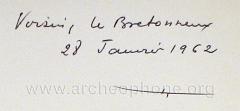 Voisin, le Bretonneux
28 Janvier 1962
www.archeophone.org